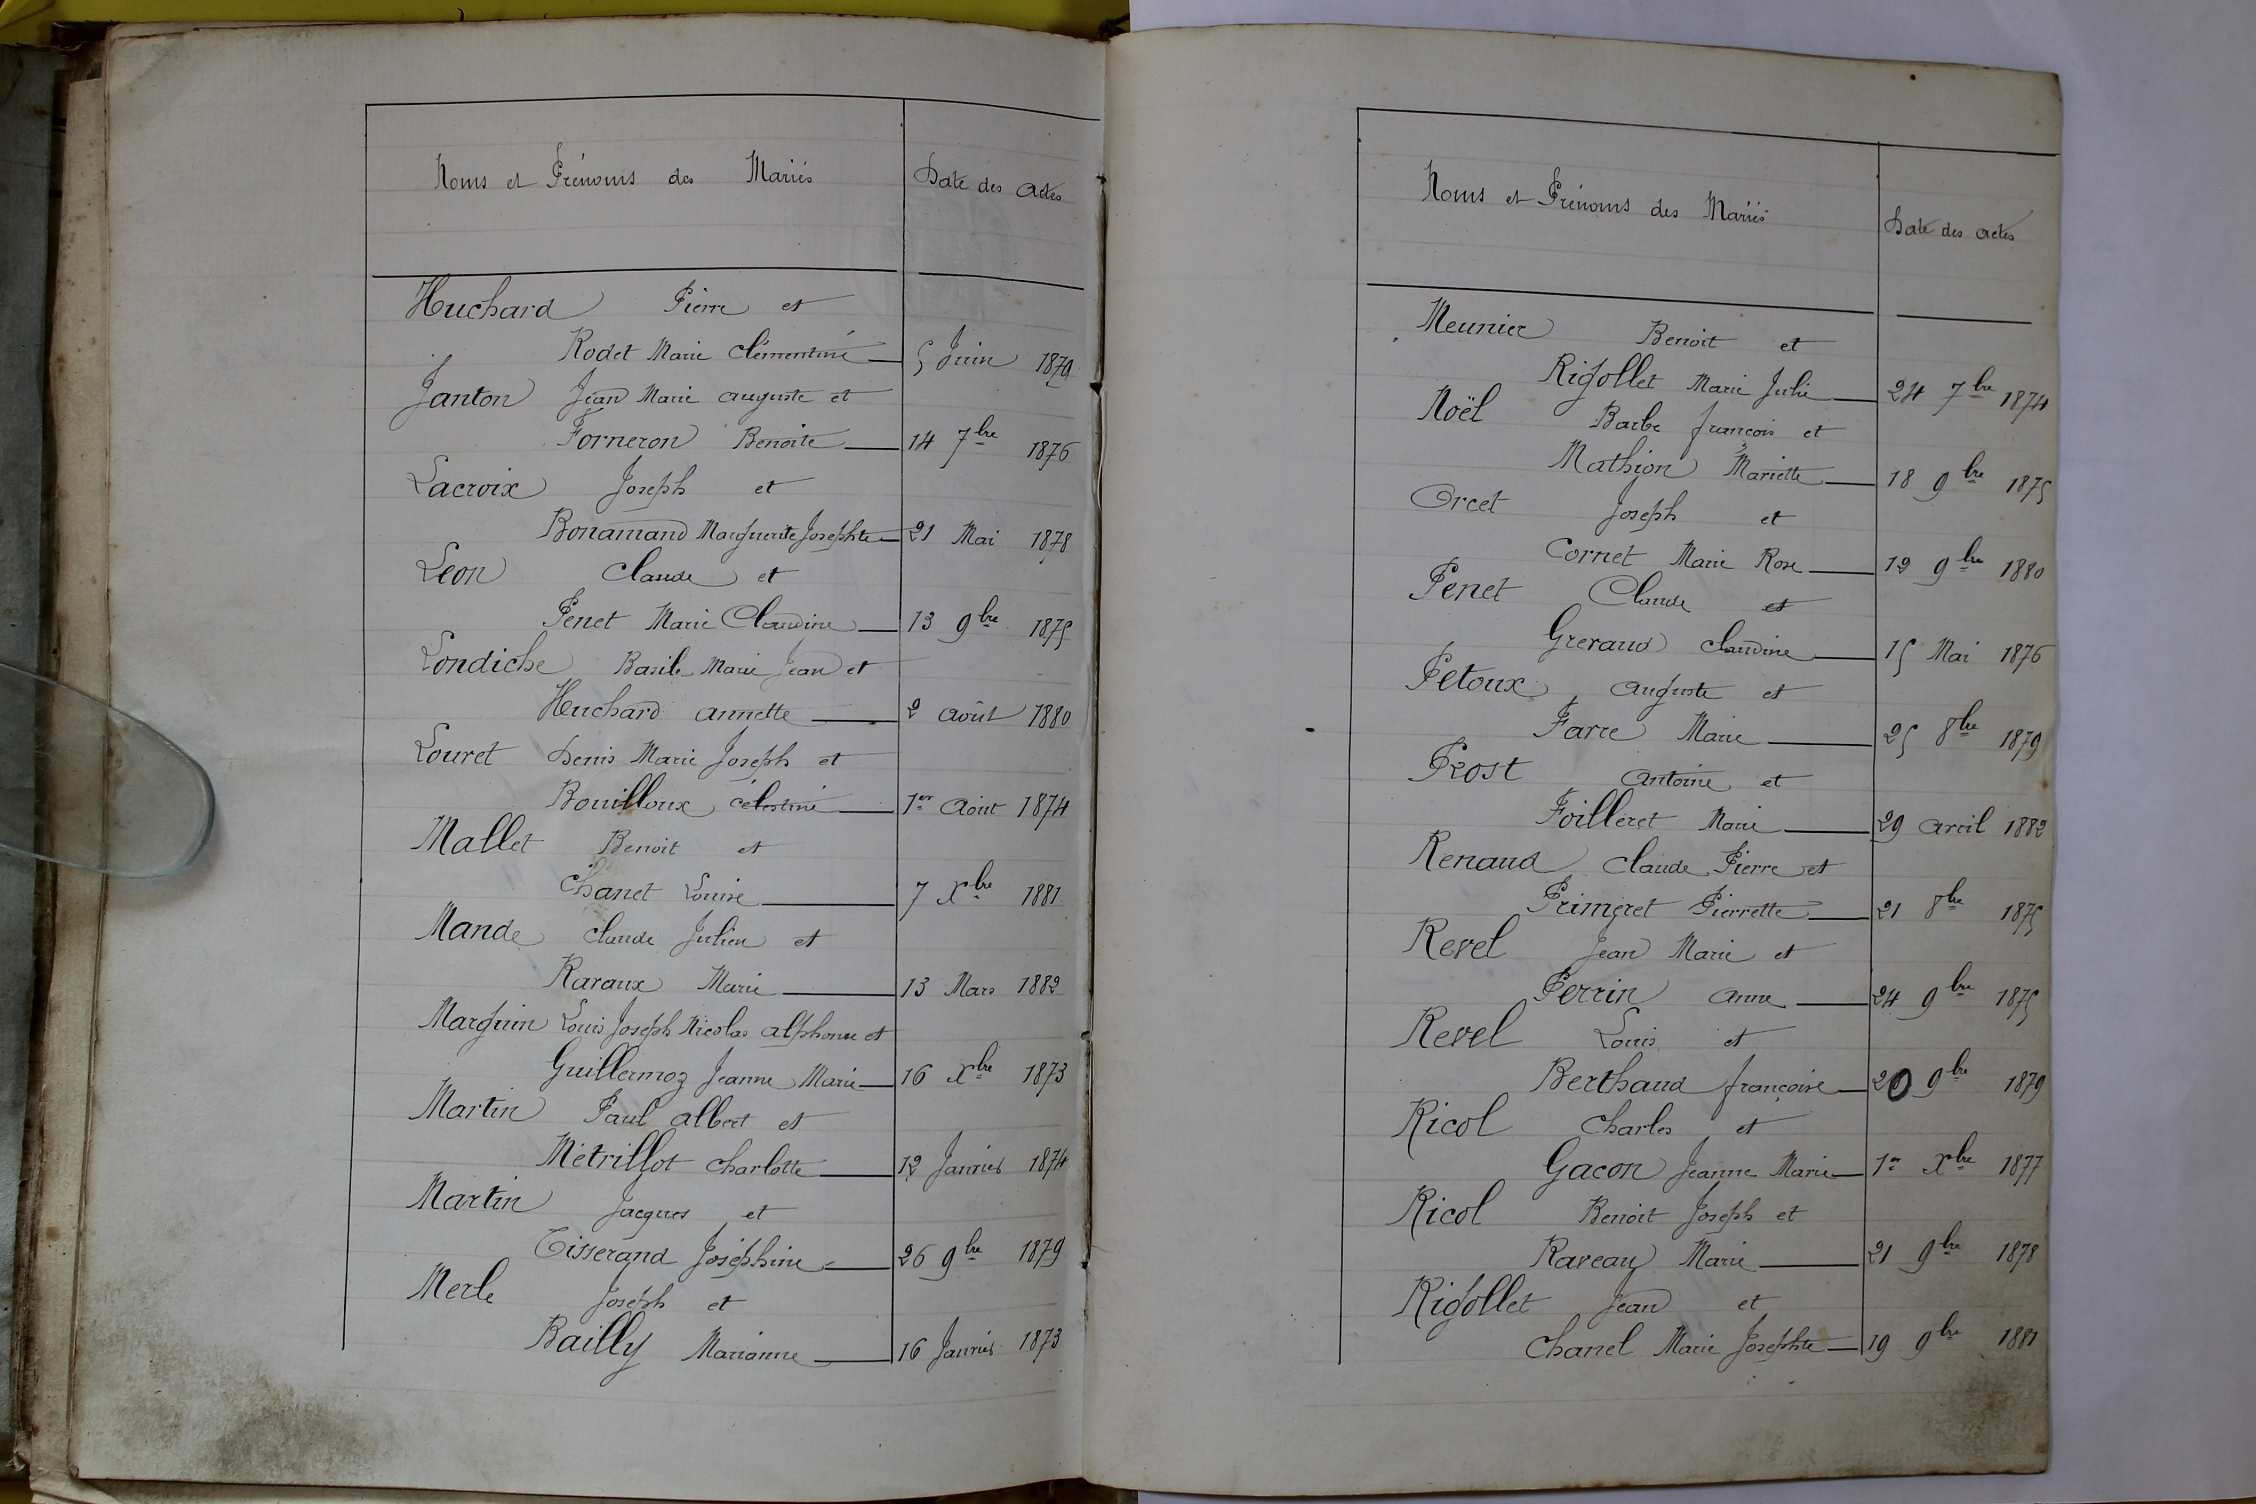 Noms et Prénoms des Mariés Date des actes
Huchard Pierre et
Rodet Marie Clémentine 5 Juin 1879
Janton Jean Marie auguste et
Forneron Benoite 14 7bre 1876
Lacroix Joseph et
Bonamand Marguerite Josephte 21 Mai 1878
Leon Claude et
Penet Marie Claudine 13 9bre 1875
Londiche Basile Marie Jean et
Huchard annette 2 août 1880
Louret Denis Marie Joseph et
Bouilloux célestine 1er Août 1874
Mallet Benoit et
Chanet Louise 7 Xbre 1881
Mande Claude Julien et
Ravaux Marie 13 Mars 1882
Marguin Louis Joseph Nicolas alphonse et
Guillermoz Jeanne Marie 16 Xbre 1873
Martin Paul albert et
Métrillot charlotte 12 Janvier 1874
Martin Jacques et
Tisserand Joséphine 26 9bre 1879
Merle Joseph et
Bailly Marianne 16 Janvier 1873
Noms et Prénoms des Mariés Date des actes
Meunier Benoit et
Rigollet Marie Julie 24 7bre 1874
Noël Barbe françois et
Mathion Mariette 18 9bre 1875
Orcet Joseph et
Cornet Marie Rose 12 9bre 1880
Penet Claude et
Greraud Claudine 15 Mai 1876
Petoux auguste et
Farre Marie 25 8bre 1879
Prost antoine et
Foilleret Marie 29 avril 1882
Renaud Claude Pierre et
Primeret Pierrette 21 8bre 1875
Revel Jean Marie et
Perrin anne 24 9bre 1875
Revel Louis et
Berthaud françoise 20 9bre 1879
Ricol Charles et
Gacon Jeanne Marie 1er Xbre 1877
Ricol Benoit Joseph et
Raveau Marie 21 9bre 1878
Rigollet Jean et
Chanel Marie Josephte 19 9bre 1881